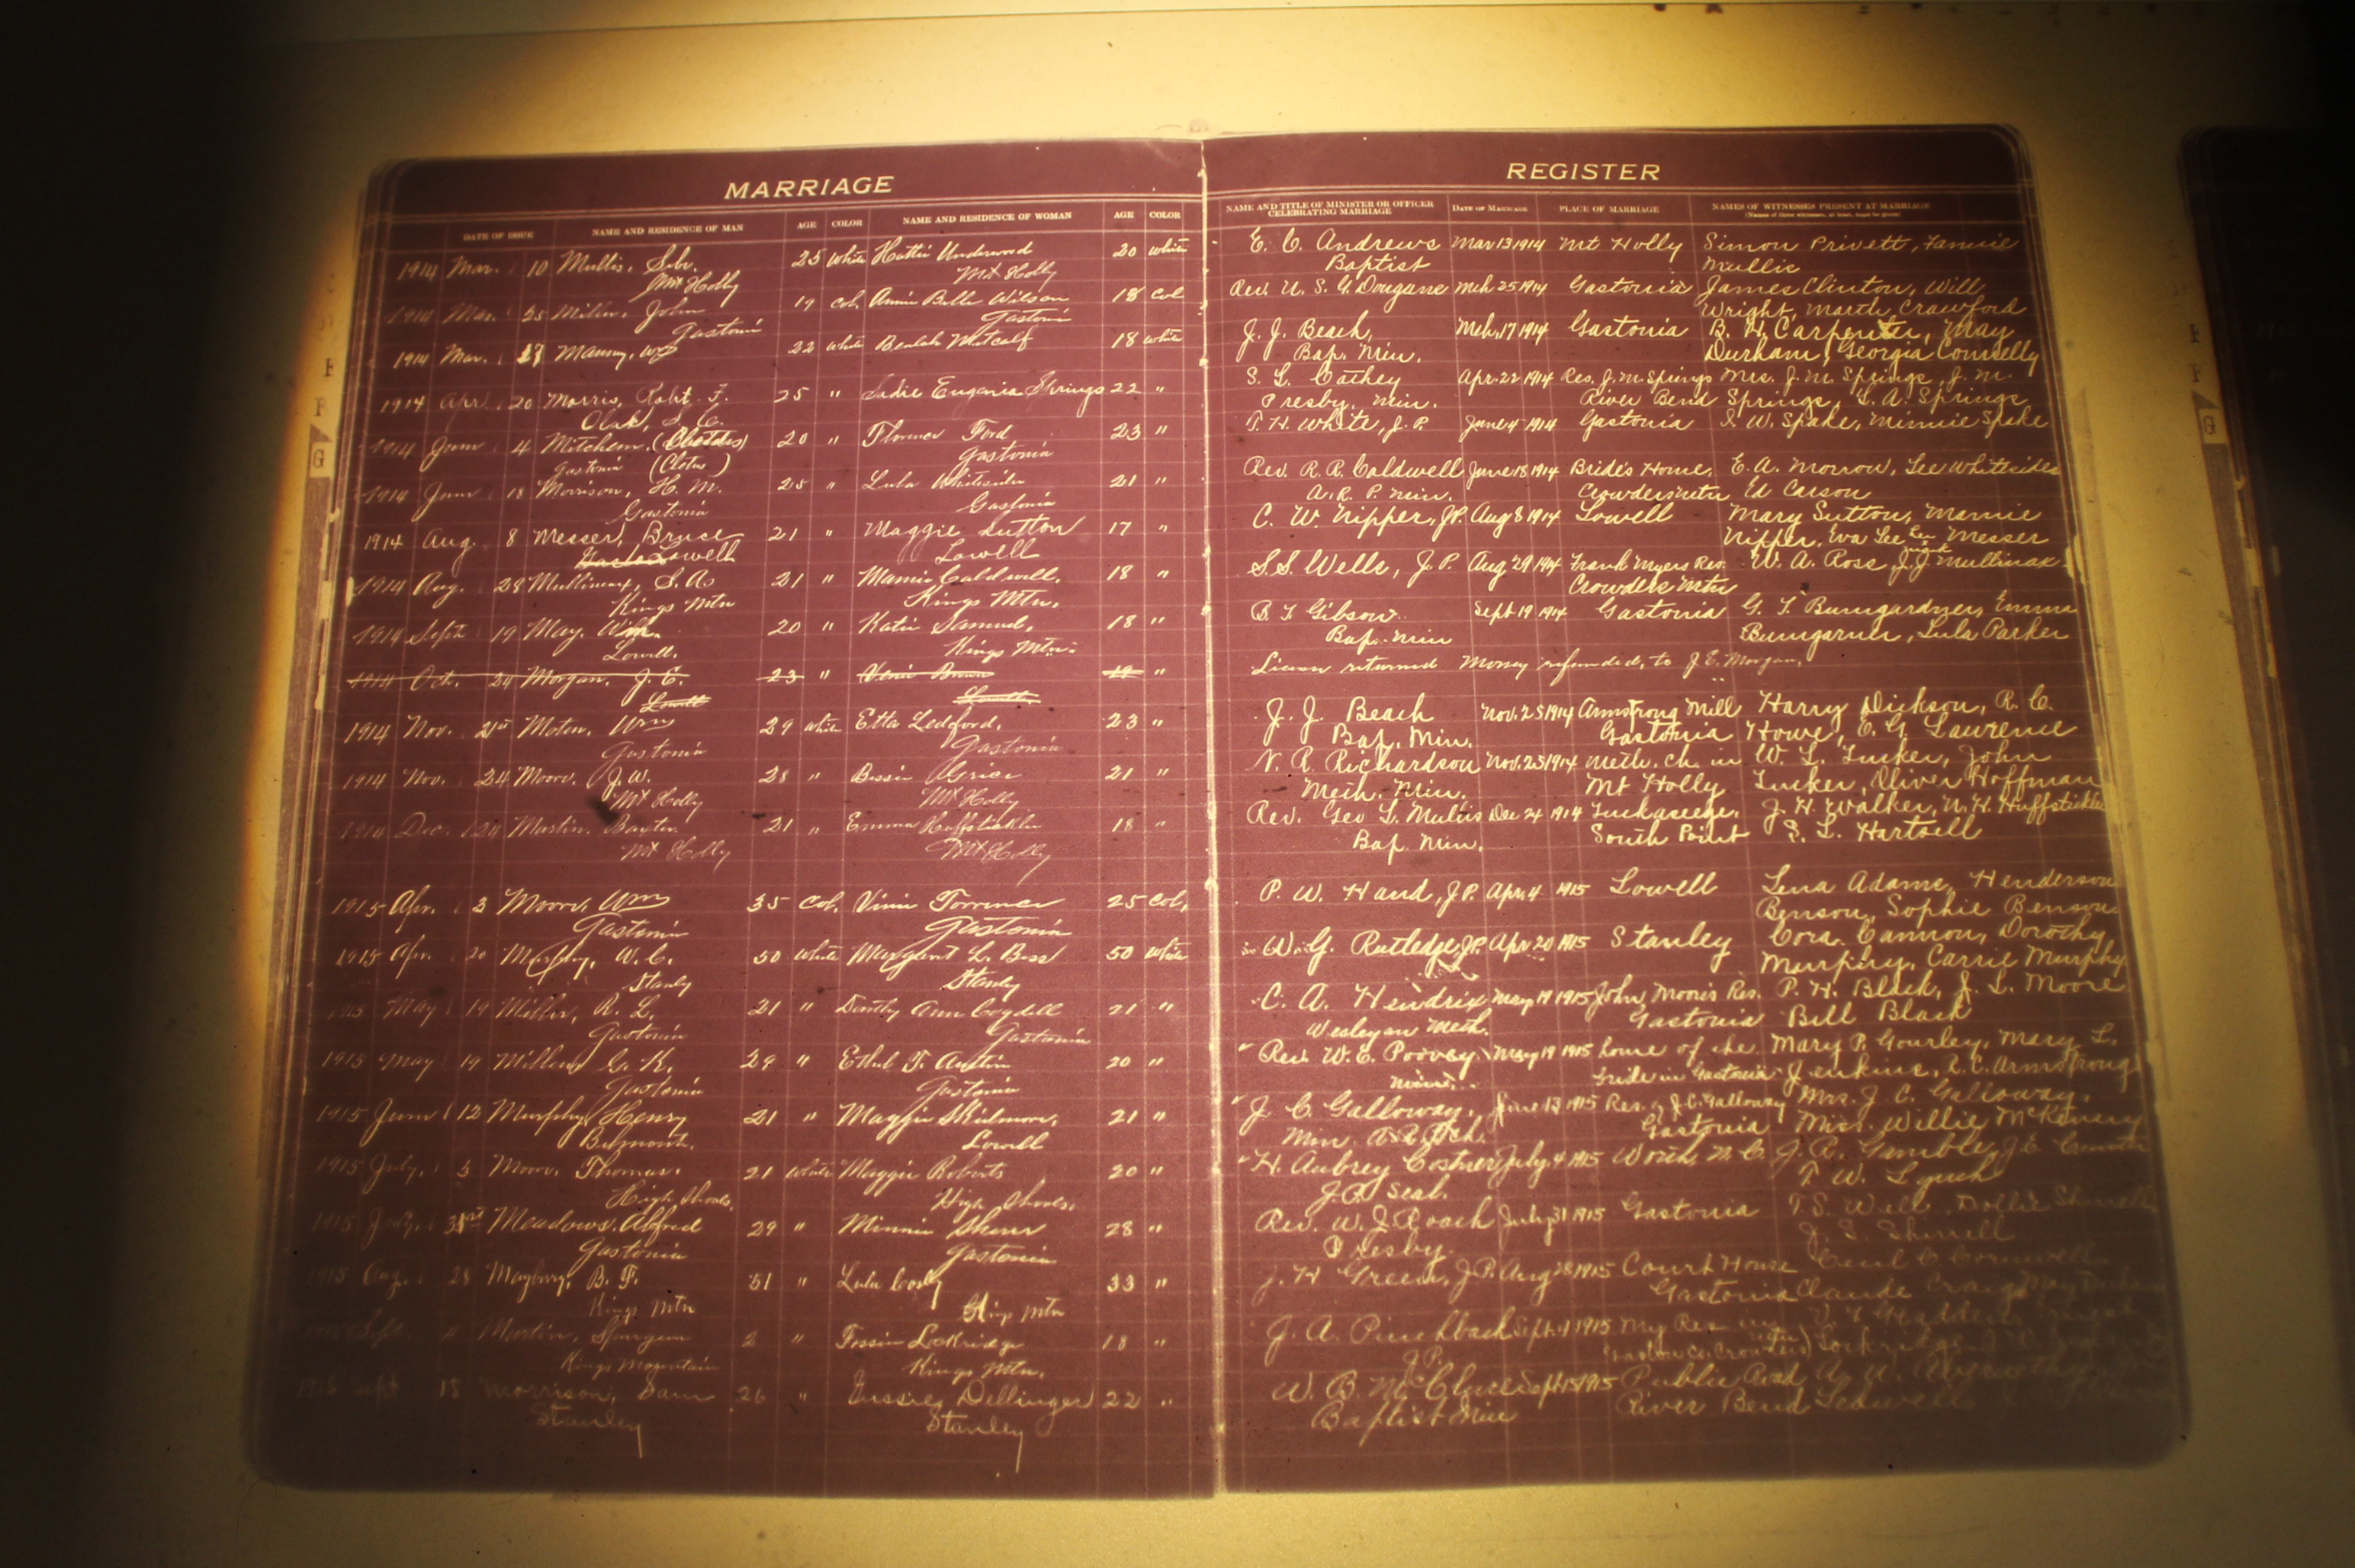 MARRIAGE
DATE OF ISSUE NAME AND RESIDENCE OF MAN AGE COLOR NAME AND RESIDENCE OF WOMAN AGE COLOR
1914 Mar. 10 Mullis, 25 white Hattie Underwood 20 white
Mt Holly Mt Holly
1914 Mar. 25 Miller, John 19 col. Annie Belle Wilson 18 col
Gastonia Gastonia
1914 Mar. 17 Mauney, Wm 22 white Beulah Metcalf 18 white
1914 Apr. 20 Morris, Robt. F. 25 " Sadie Eugenia Springs 22 "
S. C.
1914 June 4 Mitchem, 20 " Florence Ford 23 "
Gastonia (Clotus) Gastonia
1914 June 18 Morrison, H. M. 25 " Lula Whitesides 21 "
Gastonia Gastonia
1914 Aug. 8 Messer, Bruce 21 " Maggie Sutton 17 "
Lowell Lowell
1914 Aug. 28 Mullinax, S. A. 21 " Mamie Caldwell, 18 "
Kings Mtn Kings Mtn.
1914 Sept. 19 May, Wm. 20 " Katie Samuel, 18 "
Lowell. Kings Mtn.
1914 Oct. 24 Morgan, J. E. 23 " Brown 19 "
Lowell Lowell
1914 Nov. 21st Moton, Wm 29 white Etta Ledford, 23 "
Gastonia Gastonia
1914 Nov. 24 Moore, J. W. 28 " Bessie Grice 21 "
Mt Holly Mt Holly
1914 Dec. 24 Martin, Baxter 21 " Emma Huffstickler 18 "
Mt Holly Mt Holly
1915 Apr. 3 Moore, Wm 35 Col. Vinie Torrence 25 Col.
Gastonia Gastonia
1915 Apr. 20 Murphy, W. C. 50 White Margaret L. Bess 50 White
Stanly Stanly
1915 May 19 Miller, R. L. 21 " Dorothy Ann Cogdell 21 "
Gastonia Gastonia
1915 May 19 G. K. 29 " Ethel F. Austin 20 "
Gastonia Gastonia
1915 June 12 Murphy, Henry 21 " Maggie Skidmore, 21 "
Belmont. Lowell
1915 July, 3 Moore, Thomas. 21 White Maggie Roberts 20 "
High Shoals, High Shoals,
1915 July, 31st Meadows, Alfred 29 " Minnie 28 "
Gastonia Gastonia
1915 Aug. 28 Mayberry, B. F. 31 " Lula 33 "
Kings Mtn King Mtn
Sept. Martin, Spurgeon 2 " Lockridge 18 "
Kings Mountain Kings Mtn.
1915 Sept 15 Morrison, Sam 26 " Dellinger 22 "
Stanley Stanley
REGISTER
NAME AND TITLE OF MINISTER OR OFFICER CELEBRATING MARRIAGE DATE OF MARRIAGE PLACE OF MARRIAGE NAMES OF WITNESSES PRESENT AT MARRIAGE
(Names of three witnesses, at least, must be given)
E. C. Andrews Mar 13 1914 Mt Holly Simon Privett, Fannie
Baptist Mullis
Rev. U. S. G. Mch 25 1914 Gastonia James Clinton, Will
Wright, Crawford
J. J. Beach, Mch. 17 1914 Gastonia B. H. Carpenter, May
Bap. Min. Durham, Georgia Connelly
S. L. Cathey Apr. 22 1914 Res. J. M. Springs Mrs. J. M. Springs, J. M.
Presby. Min. River Bend Springs, L. A. Springs
T. H. White, J. P. June 4 1914 Gastonia W. Spake, Minnie Spake
Rev. R. A. Caldwell June 18 1914 Bride's Home, E. A. Morrow, Lee Whitesides
A. R. P. Min. Crowders Mtn Ed Carson
C. W. Nipper, J.P. Aug 8 1914 Lowell Mary Sutton, Mamie
Nipper, Eva Lee Messer
S. S. Wells, J. P. Aug 29 1914 Frank Myers Res. W. A. Ross, J. J. Mullinax
Crowders Mtn
B. F. Gibson Sept 19 1914 Gastonia G. F. Bumgardner, Emma
Bap. Min Bumgarner, Lula Parker
License returned Money refunded, to J. E. Morgan.
J. J. Beach Nov. 25 1914 Armstrong Mill Harry Dickson, R. C.
Bap. Min. Gastonia Howe, E. G. Lawrence
N. R. Richardson Nov. 25 1914 Meth. Ch. in W. L. Tucker, John
Meth. Min. Mt Holly Tucker, Oliver Hoffman
Rev. Geo L. Dec 24 1914 Tuckaseege, J. H. Walker, N. H. Huffstickler
Bap. Min. South Point S. L. Hartsell
P. W. Hand, J.P. Apr. 4 1915 Lowell Lena Adams, Henderson
Benson, Sophie Benson
W. G. Rutledge J.P. Apr 20 1915 Stanley Cora Cannon, Dorothy
Murphy, Carrie Murphy
C. A. Hendrix May 19 1915 John Moore's Res. P. H. Black, J. L. Moore
Wesleyan Meth. Gastonia Bill Black
Rev. W. E. Poovey May 19 1915 home of the Mary P. Gourley, Mary L.
Min. bride in Gastonia Jenkins, R. C. Armstrong
J. C. Galloway, June 13 1915 Res. of J. C. Galloway Mrs. J. C. Galloway,
Min. Gastonia Miss. Willie
H. Aubrey Costner July 4 1915 Worth N. C. J. R. Gamble, J. E.
J.P. Seal. T. W. Lynch
Rev. W. J. Roach July 31 1915 Gastonia T. S. Dollie
Presby. J. S. Shirrell
J. H. Green, J.P. Aug 28 1915 Court House Cecil C. Cornwell,
Gastonia Claude Craig
J. A. Pinchback Sept. 1915 My Res
J.P. Gaston Co. Crowders
W. B. McClure Sept 15 1915 Public Road
Baptist Min River Bend